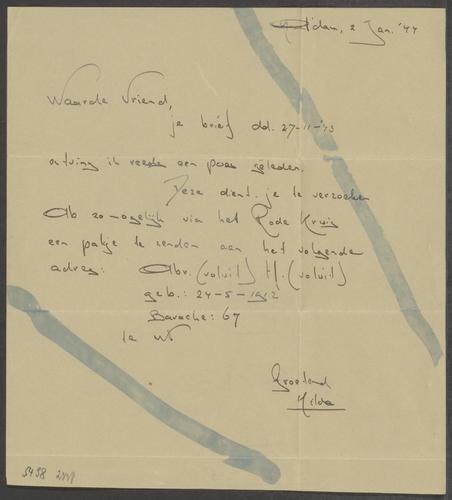 A'dam, 2 Jan. '44
Waarde Vriend,
je brief dd. 27-11-'43
ontving ik reeds een poos geleden.
Deze dient je te verzoeken
Ab zo mogelijk via het Rode Kruis
een pakje te zenden aan het volgende
adres: Abr. (voluit) H. (voluit)
geb.: 24-5-1912
Baracke: 67
te W
Groetend
Hilda
5458